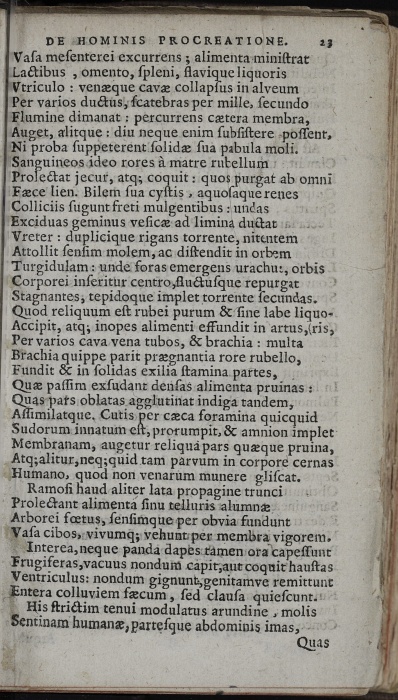 DE HOMINIS PROCREATIONE. 23
Vaſa meſenterei excurrens ; alimenta miniſtrat
Lactibus , omento, ſpleni, flavique liquoris
Vtriculo : venæque cavæ collapſus in alveum
Per varios ductus, ſcatebras per mille, ſecundo
Flumine dimanat : percurrens cætera membra,
Auget, alitque : diu neque enim ſubſiſtere poſſent,
Ni proba ſuppeterent ſolidæ ſua pabula moli.
Sanguineos ideo rores à matre rubellum
Prolectat jecur, atq; coquit : quos purgat ab omni
Fæce lien. Bilem ſua cyſtis , aquoſaque renes
Colliciis ſugunt freti mulgentibus : undas
Exciduas geminus veſicæ ad limina ductat
Vreter : duplicique rigans torrente, nitentem
Attollit ſenſim molem, ac diſtendit in orbem
Turgidulam : unde foras emergens urachus, orbis
Corporei inſeritur centro, fluctuſque repurgat
Stagnantes, tepidoque implet torrente ſecundas.
Quod reliquum eſt rubei purum & ſine labe liquo-
Accipit, atq; inopes alimenti effundit in artus, (ris,
Per varios cava vena tubos, & brachia : multa
Brachia quippe parit prægnantia rore rubello,
Fundit & in ſolidas exilia ſtamina partes,
Quæ paſſim exſudant denſas alimenta pruinas :
Quas pars oblatas agglutinat indiga tandem,
Aſſimilatque. Cutis per cæca foramina quicquid
Sudorum innatum eſt, prorumpit, & amnion implet
Membranam, augetur reliqua pars quæque pruina,
Atq; alitur, neq; quid tam parvum in corpore cernas
Humano, quod non venarum munere gliſcat.
Ramoſi haud aliter lata propagine trunci
Prolectant alimenta ſinu telluris alumnæ
Arborei fœtus, ſenſimque per obvia fundunt
Vaſa cibos, vivumq; vehunt per membra vigorem.
Interea, neque panda dapes tamen ora capeſſunt
Frugiferas, vacuus nondum capit, aut coquit hauſtas
Ventriculus: nondum gignunt, genitamve remittunt
Entera colluviem fæcum , ſed clauſa quieſcunt.
His ſtrictim tenui modulatus arundine , molis
Sentinam humanæ, parteſque abdominis imas,
Quas